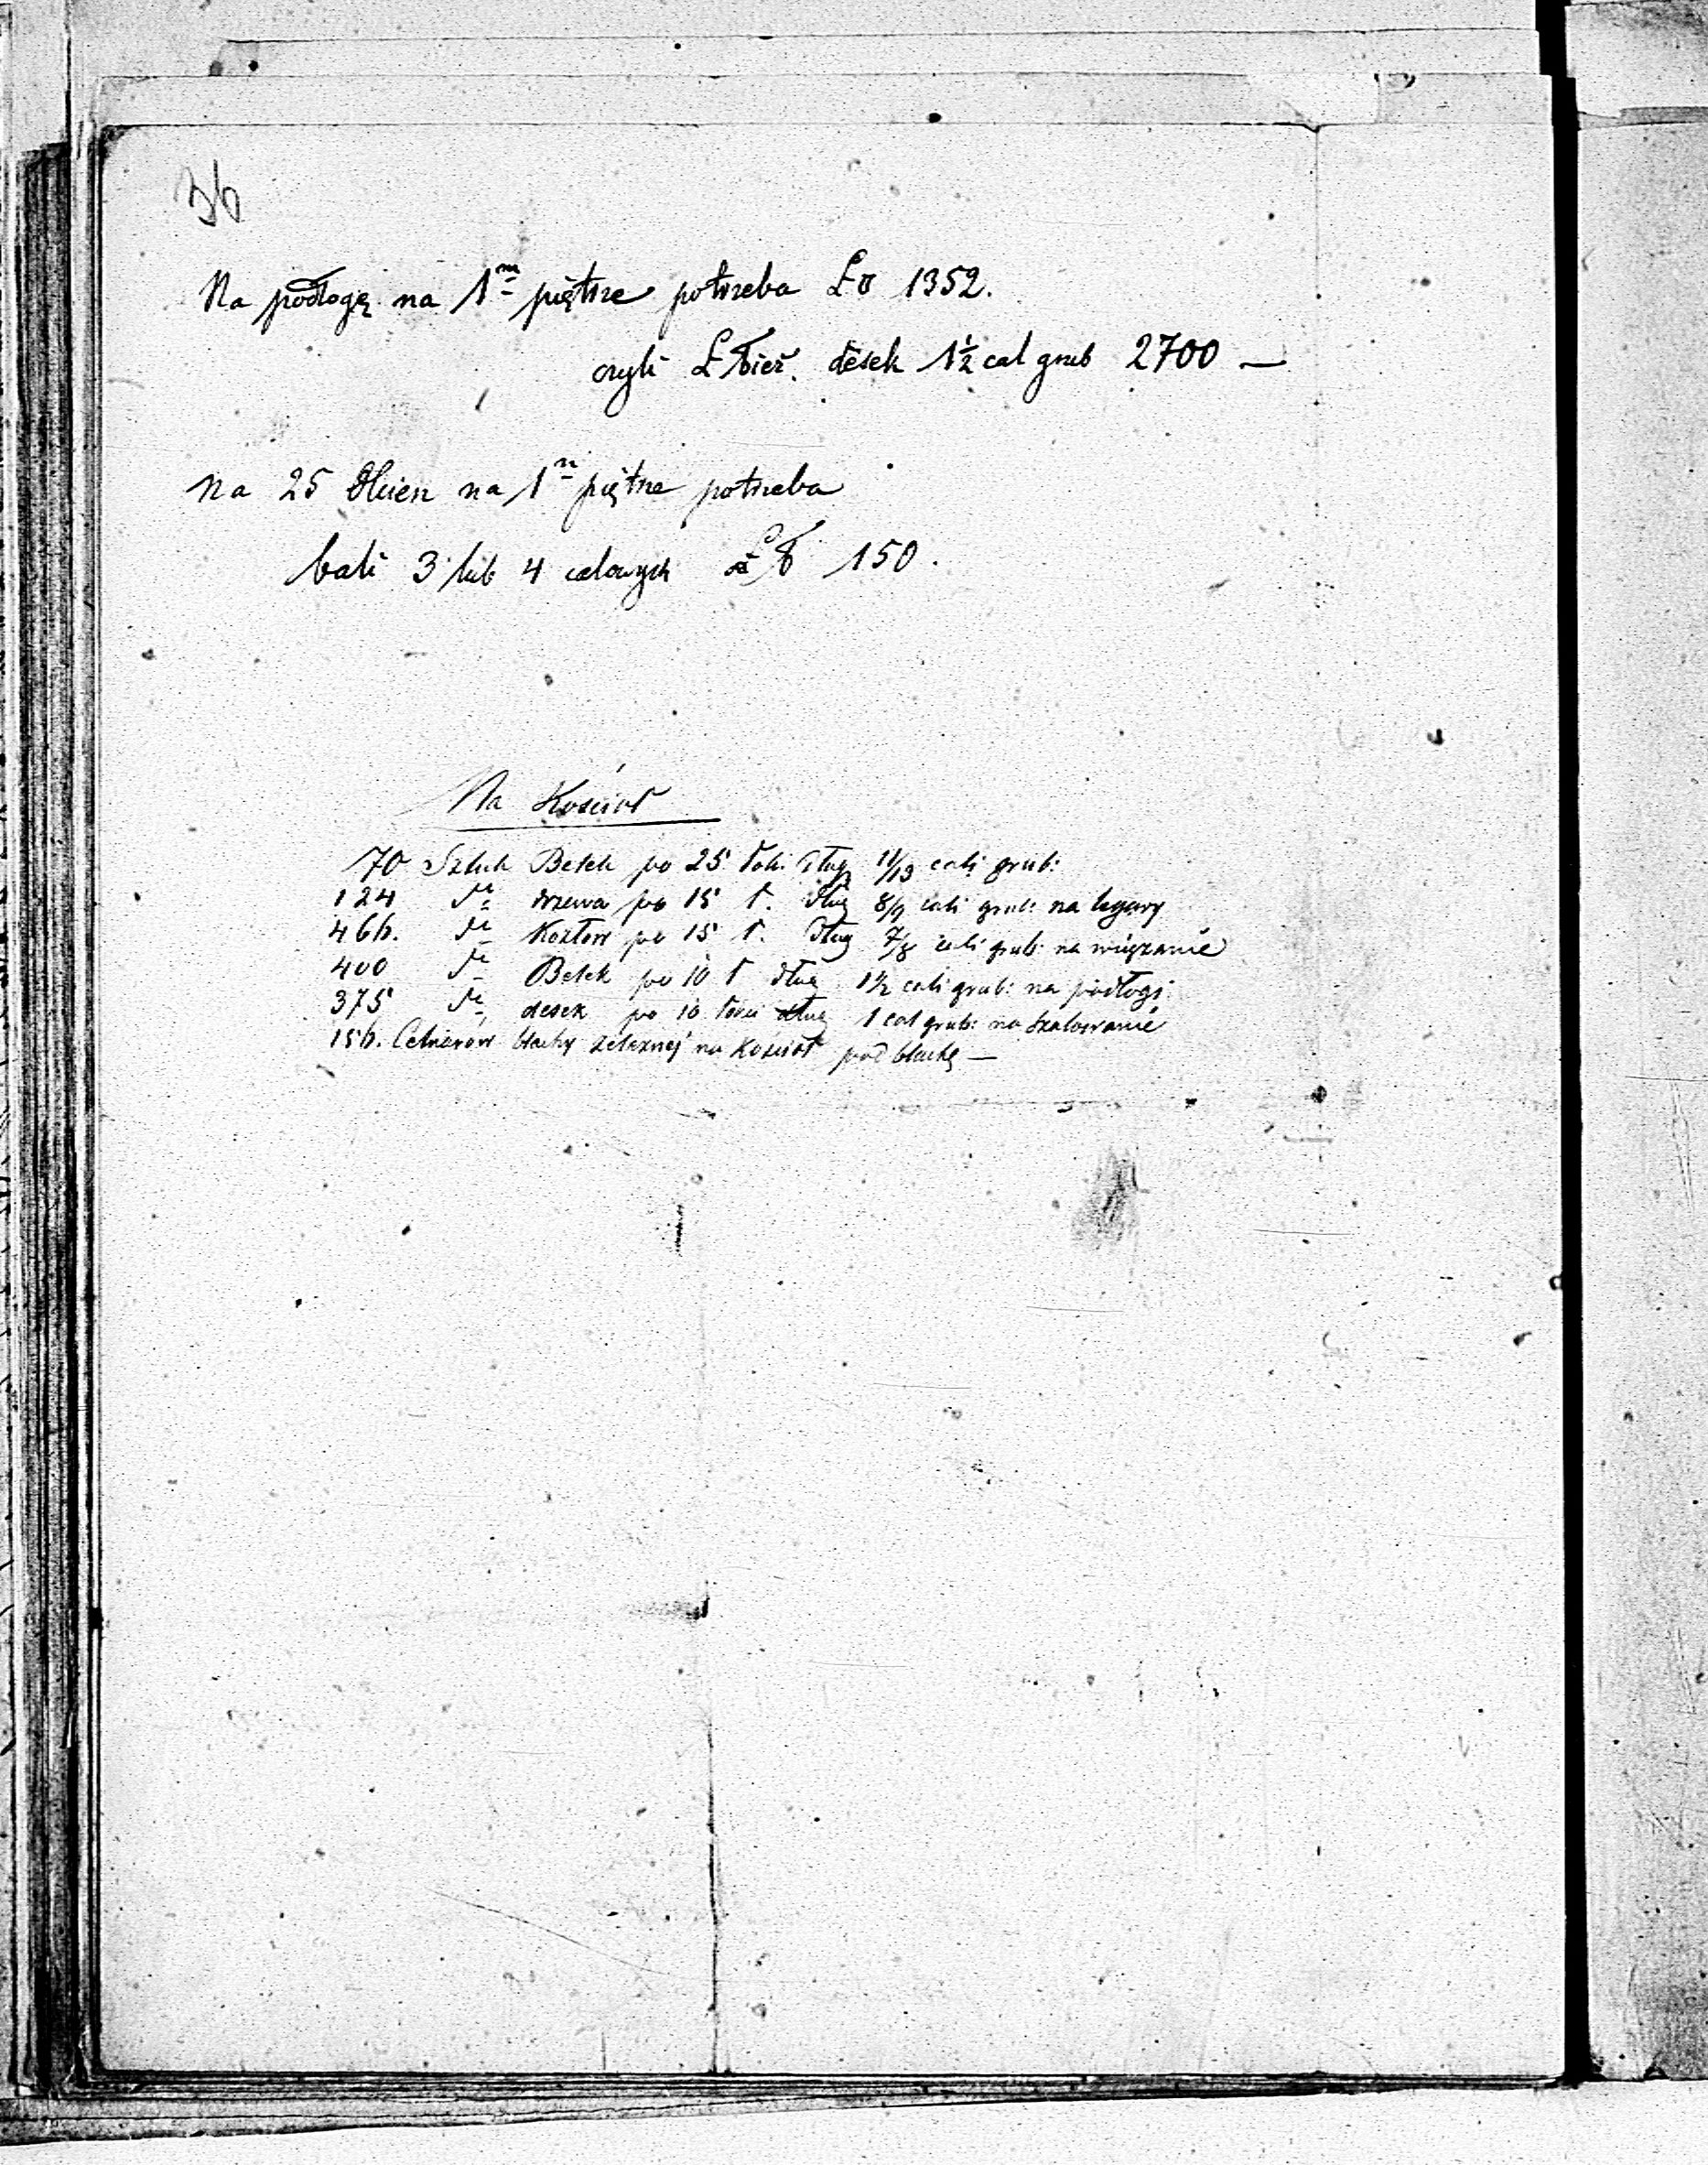 36
Na podłogę na 1m piętrze potrzeba Ł□ 1352.
czyli Ł bież. desek 1½ cal grub 2700 —
Na 25 Okien na 1m piętrze potrzeba
bali 3 lub 4 calowych 150.
Na Kościoł
70 Sztuk Belek po 25 łok. dług 11/13 cali grub:
124 drzewa po 15 ł. dług 8/9 cali grub: na legary
466. Kozłow po 15 ł. dług 7/8 cali grub: na wiązanie
400 Belek po 10 ł dług 1½ cali grub: na podłogi
375 desek po 10 łoki dług 1 cal grub: na szalowanie
156. Cetnarów blachy żelaznej na Kościoł pod blachę —